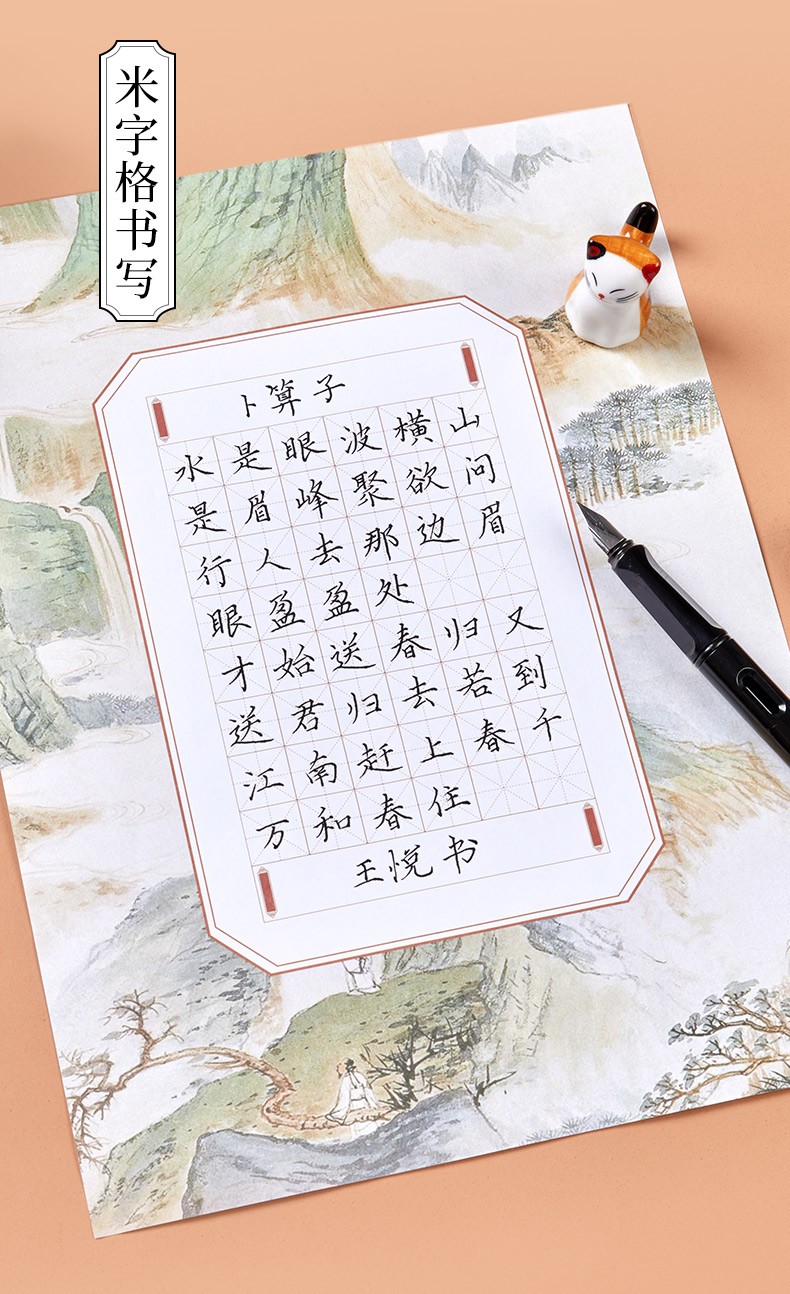 米字格书写
卜算子
水是眼波横山
是眉峰聚欲问
行人去那边眉
眼盈盈处
才始送春归又
送君归去若到
江南赶上春千
万和春住
王悦书